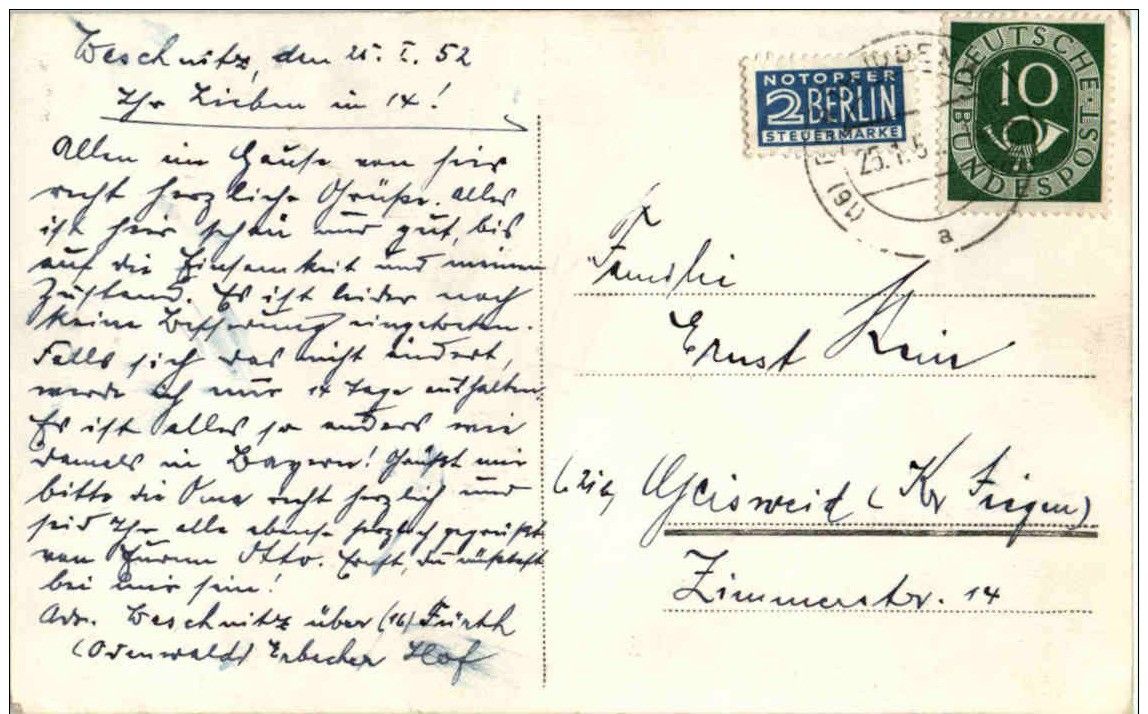 Weschnitz, den 25. I. 52
Ihr Lieben in 14!
Allen im Hause von hier
recht herzliche Grüße. Alles
ist hier schön und gut, bis
auf die Einsamkeit und meinen
Zustand. Es ist leider noch
keine Besserung eingetreten.
Falls sich das nicht ändert,
werde ich nur 14 Tage aushalten.
Es ist alles so anders wie
damals in Bayern! Grüßt mir
bitte die Oma recht herzlich und
seid Ihr alle ebenso herzlich gegrüßt
von Eurem Otto. Ernst, du müßtest
bei mir sein!
Adr. Weschnitz über (16) Fürth
(Odenwald) Erbacher Hof
NOTOPFER
2 BERLIN
STEUERMARKE
DEUTSCHE BUNDESPOST
10
(16)
25.1.5
a
Familie
Ernst
Geisweid (Kr Siegen)
Zimmerstr. 14